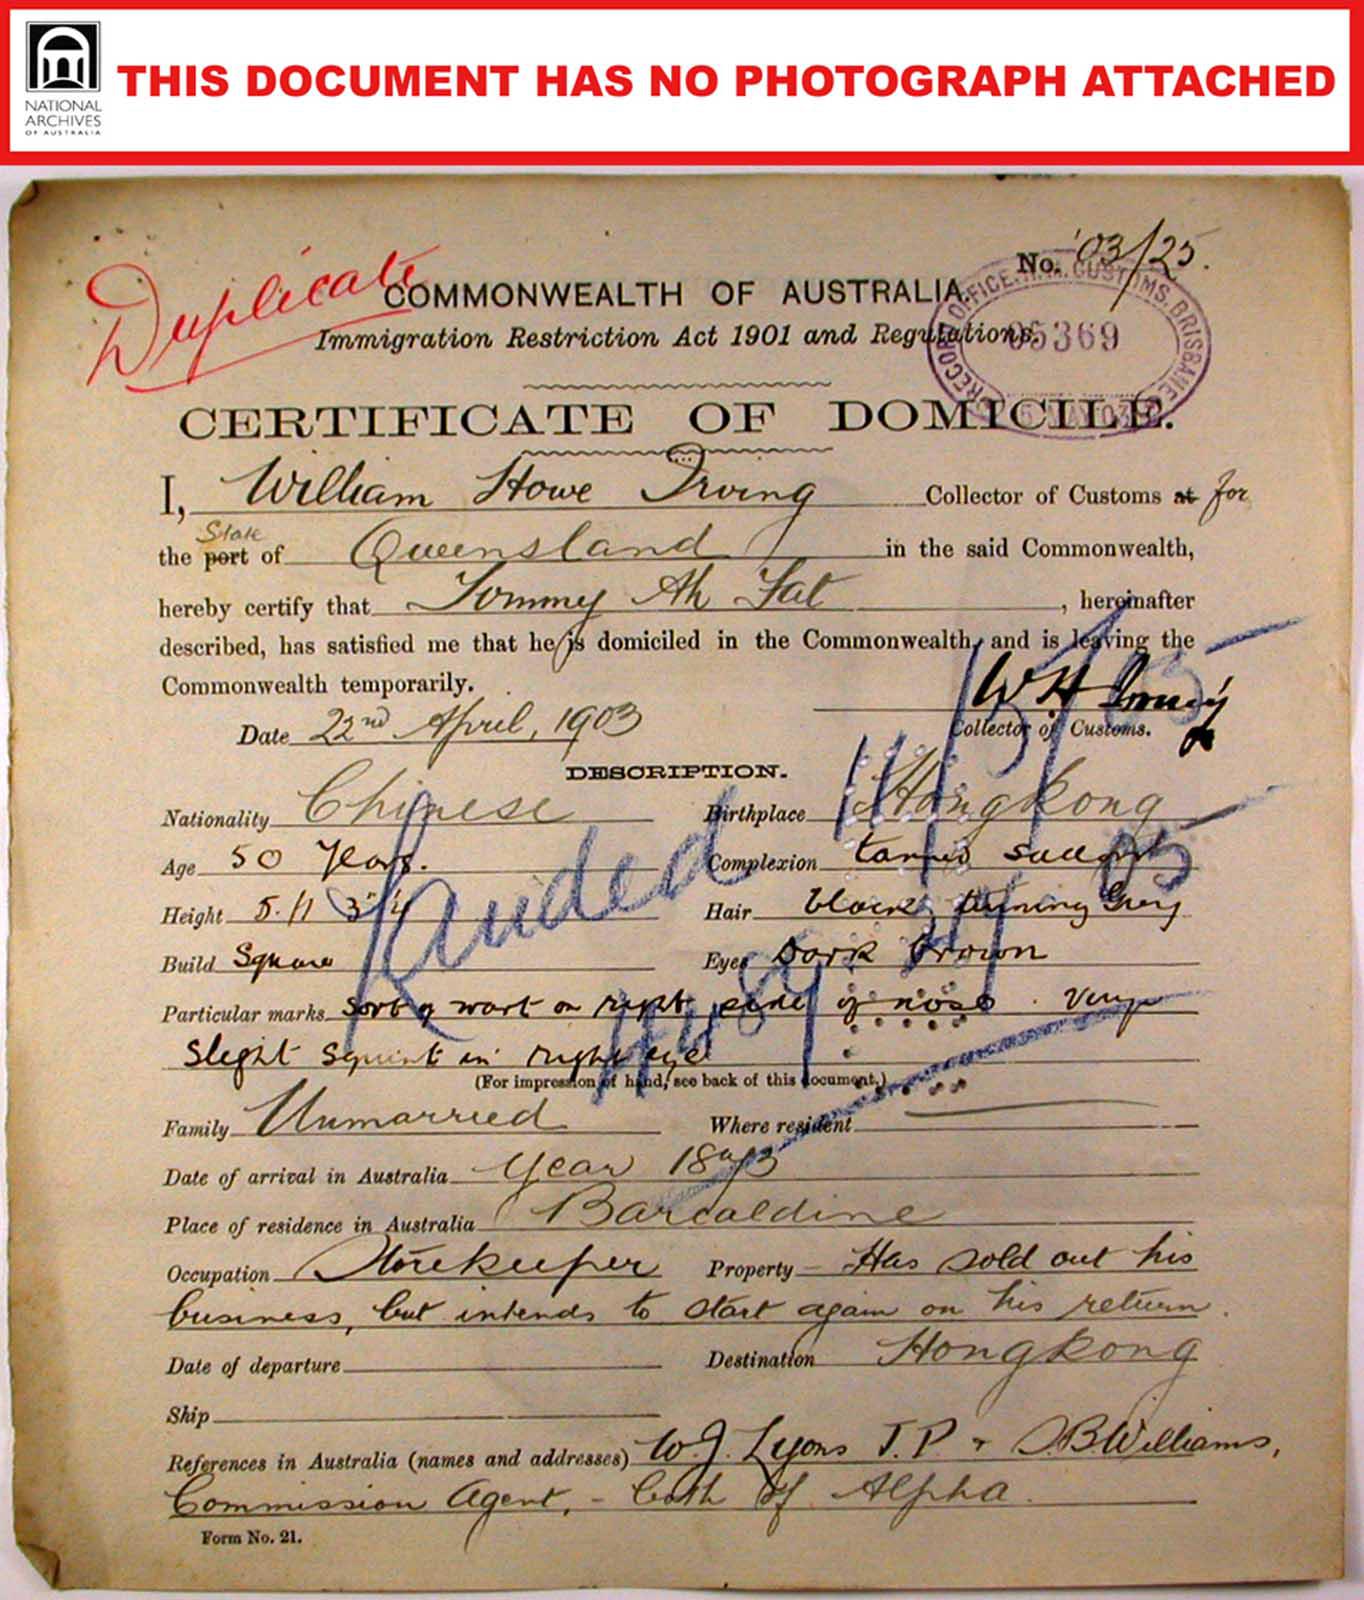 NATIONAL
ARCHIVES
OF AUSTRALIA
THIS DOCUMENT HAS NO PHOTOGRAPH ATTACHED
Duplicate
No. '03/25.
COMMONWEALTH OF AUSTRALIA.
Immigration Restriction Act 1901 and Regulations.
RECORD OFFICE, H.M. CUSTOMS, BRISBANE
05369
CERTIFICATE OF DOMICILE.
I, William Howe Irving Collector of Customs at for
State
the port of Queensland in the said Commonwealth,
hereby certify that Tommy Ah Fat, hereinafter
described, has satisfied me that he is domiciled in the Commonwealth, and is leaving the
Commonwealth temporarily.
W H Irving
Date 22nd April, 1903 Collector of Customs.
DESCRIPTION.
Nationality Chinese Birthplace Hongkong
Age 50 Years. Complexion tanned sallow
Height 5.11 3/4 Hair black, turning Grey
Build Square Eyes Dark brown
Landed
Particular marks Sort of wart on right side of nose. Very
Slight Squint in right eye
(For impression of hand, see back of this document.)
Family Unmarried Where resident
Date of arrival in Australia Year 1873
Place of residence in Australia Barcaldine
Occupation Storekeeper Property Has sold out his
business, but intends to start again on his return.
Date of departure Destination Hongkong
Ship
References in Australia (names and addresses) W.J. Lyons J.P. & Williams,
Commission Agent, - both of Alpha.
Form No. 21.